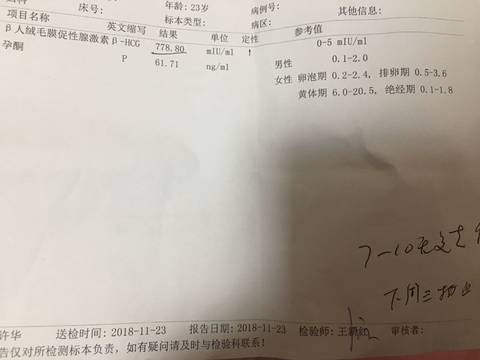 床号: 年龄:23岁 病例号: 其他信息:
标本类型: 病区:
项目名称 英文缩写 结果 单位 定性 参考值
β人绒毛膜促性腺激素 β-HCG 778.80 mIU/ml ↑ 0-5 mIU/ml
孕酮 P 61.71 ng/ml 男性 0.1-2.0
女性 卵泡期 0.2-2.4, 排卵期 0.5-3.6
黄体期 6.0-20.5, 绝经期 0.1-1.8
7-10天
下周三
许华 送检时间:2018-11-23 报告日期:2018-11-23 检验师:王 审核者:
告仅对所检测标本负责，如有疑问请及时与检验科联系！